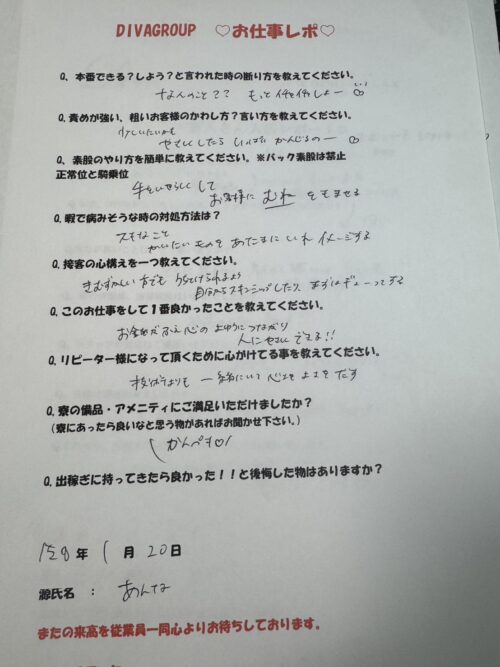 DIVAGROUP ♡お仕事レポ♡
Q、本番できる?しよう?と言われた時の断り方を教えてください。
なんのこと?? もっと
Q.責めが強い、粗いお客様のかわし方?言い方を教えてください。
少しいたいかも
やさしくしたら いっぱい かんじるのー
Q、素股のやり方を簡単に教えてください。※バック素股は禁止
正常位と騎乗位
手を して お客様に むね をもませる
Q.暇で病みそうな時の対処方法は?
スキなこと
かいたいものをあたまにいれ イメージする
Q.接客の心構えを一つ教えてください。
きむずかしい方でも うちとけられるよう
自分からスキンシップしたり、まずはギューってする
Q.このお仕事をして1番良かったことを教えてください。
お金がふえ心の よゆうにつながり
人にやさしくできる!!
Q.リピーター様になって頂くために心がけてる事を教えてください。
よりも 一緒にいて 心
Q.寮の備品・アメニティにご満足いただけましたか?
(寮にあったら良いなと思う物があればお聞かせ下さい。)
かんぺき♡
Q.出稼ぎに持ってきたら良かった!!と後悔した物はありますか?
年 1月 20日
源氏名 : あんな
またの来高を従業員一同心よりお待ちしております。